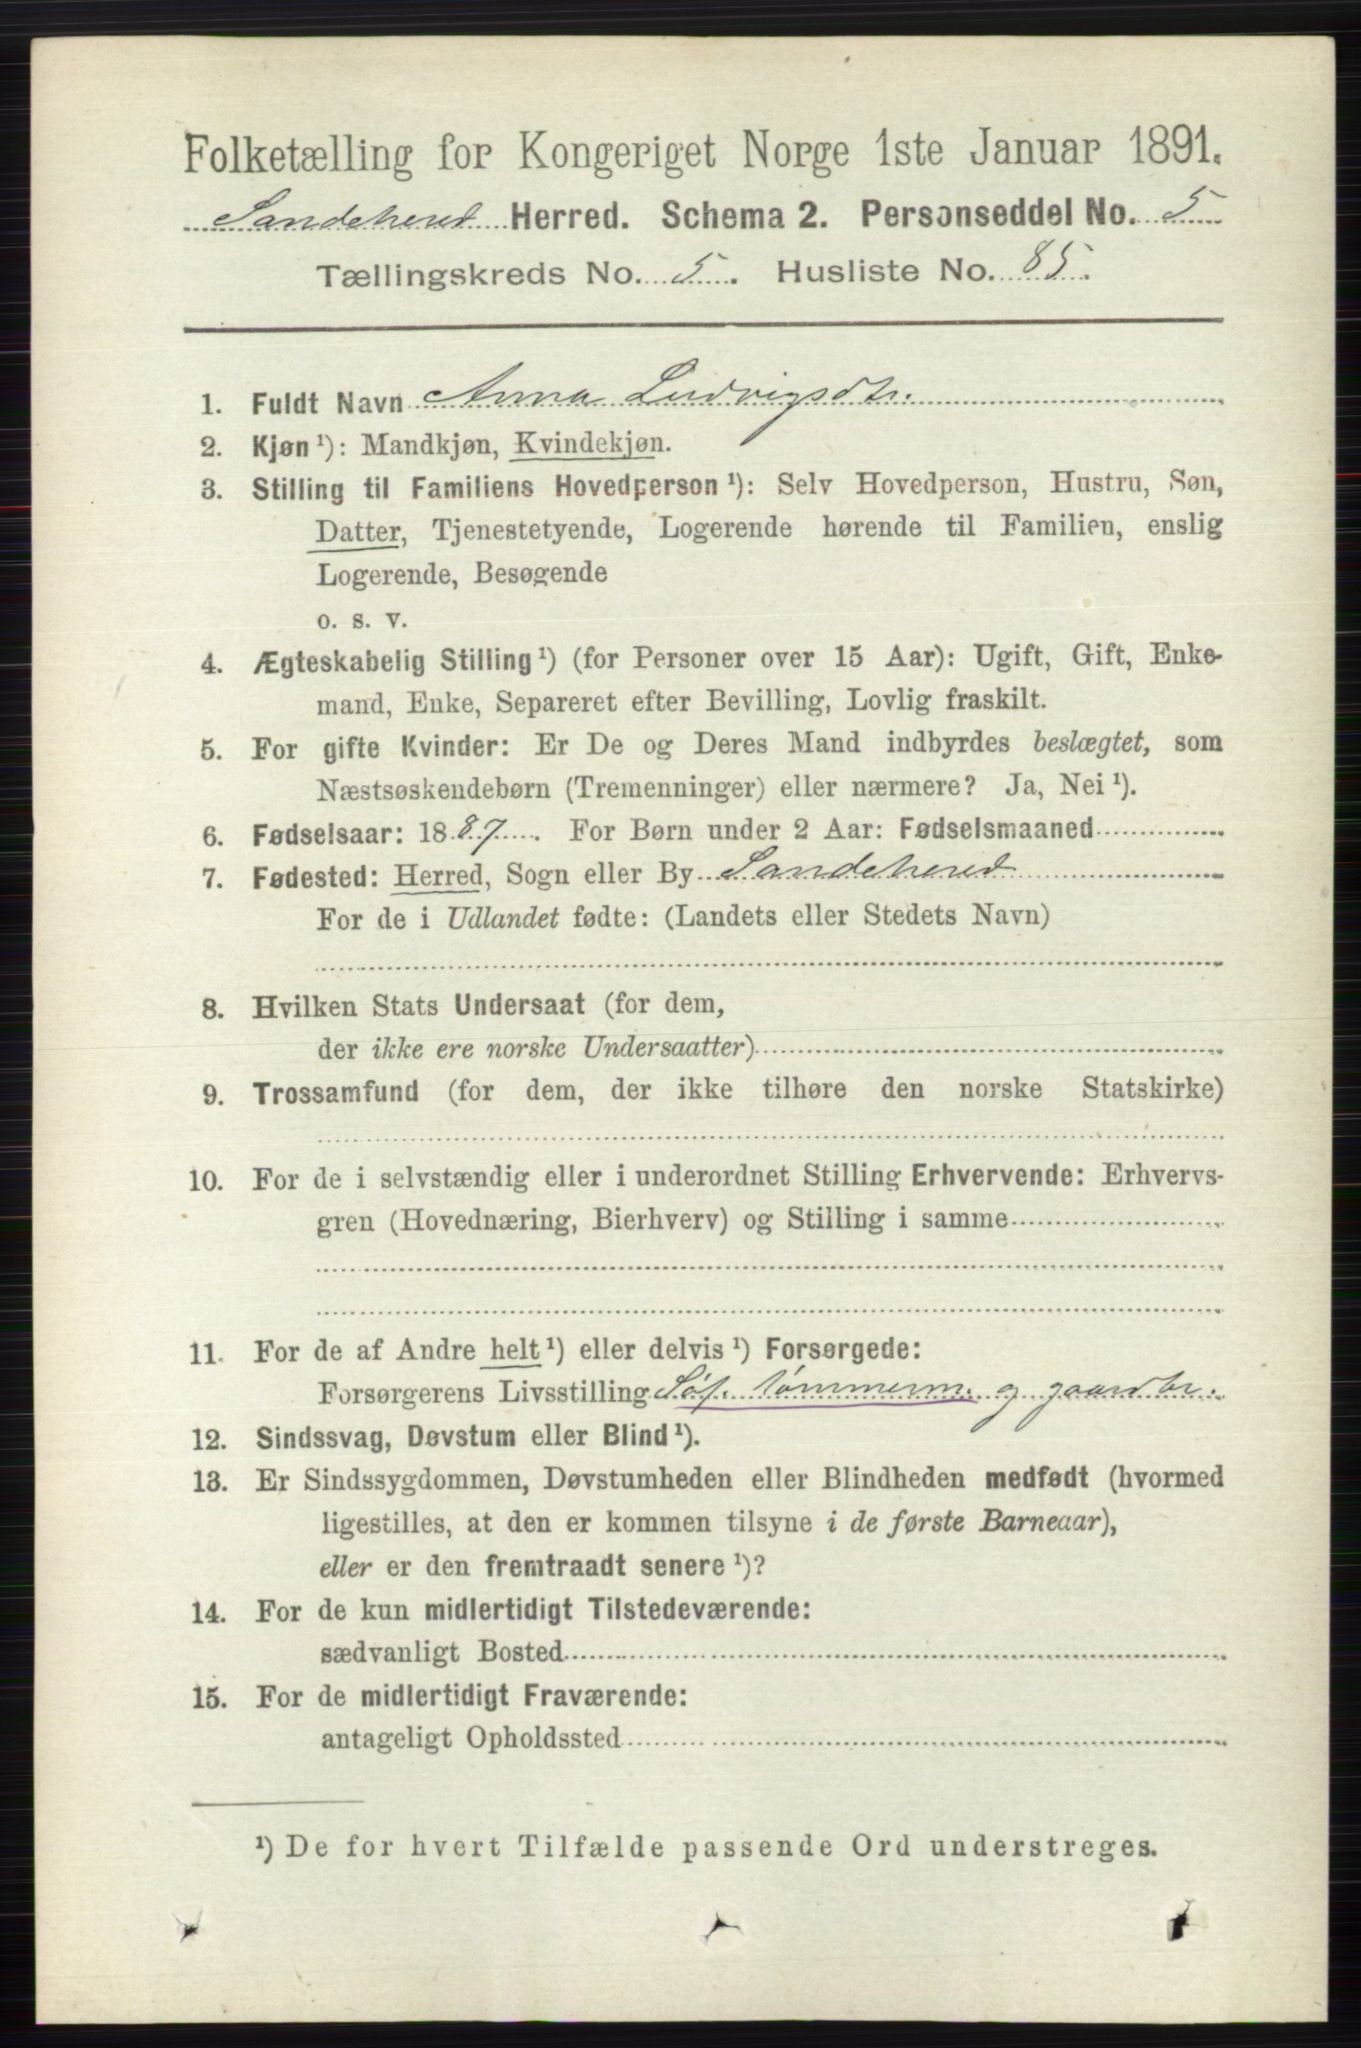 Folketælling for Kongeriget Norge 1ste Januar 1891.
Sandehered Herred. Schema 2. Personseddel No. 5
Tællingskreds No. 5. Husliste No. 85.
1. Fuldt Navn Anna Ludvigsdtr.
2. Kjøn ¹): Mandkjøn, Kvindekjøn.
3. Stilling til Familiens Hovedperson ¹): Selv Hovedperson, Hustru, Søn,
Datter, Tjenestetyende, Logerende hørende til Familien, enslig
Logerende, Besøgende
o. s. v.
4. Ægteskabelig Stilling ¹) (for Personer over 15 Aar): Ugift, Gift, Enke-
mand, Enke, Separeret efter Bevilling, Lovlig fraskilt.
5. For gifte Kvinder: Er De og Deres Mand indbyrdes beslægtet, som
Næstsøskendebørn (Tremenninger) eller nærmere? Ja, Nei ¹).
6. Fødselsaar: 1887. For Børn under 2 Aar: Fødselsmaaned
7. Fødested: Herred, Sogn eller By Sandehered
For de i Udlandet fødte: (Landets eller Stedets Navn)
8. Hvilken Stats Undersaat (for dem,
der ikke ere norske Undersaatter)
9. Trossamfund (for dem, der ikke tilhøre den norske Statskirke)
10. For de i selvstændig eller i underordnet Stilling Erhvervende: Erhvervs-
gren (Hovednæring, Bierhverv) og Stilling i samme
11. For de af Andre helt ¹) eller delvis ¹) Forsørgede:
Forsørgerens Livsstilling Søf. tømmerm. og gaardbr.
12. Sindssvag, Døvstum eller Blind ¹).
13. Er Sindssygdommen, Døvstumheden eller Blindheden medfødt (hvormed
ligestilles, at den er kommen tilsyne i de første Barneaar),
eller er den fremtraadt senere ¹)?
14. For de kun midlertidigt Tilstedeværende:
sædvanligt Bosted
15. For de midlertidigt Fraværende:
antageligt Opholdssted
¹) De for hvert Tilfælde passende Ord understreges.